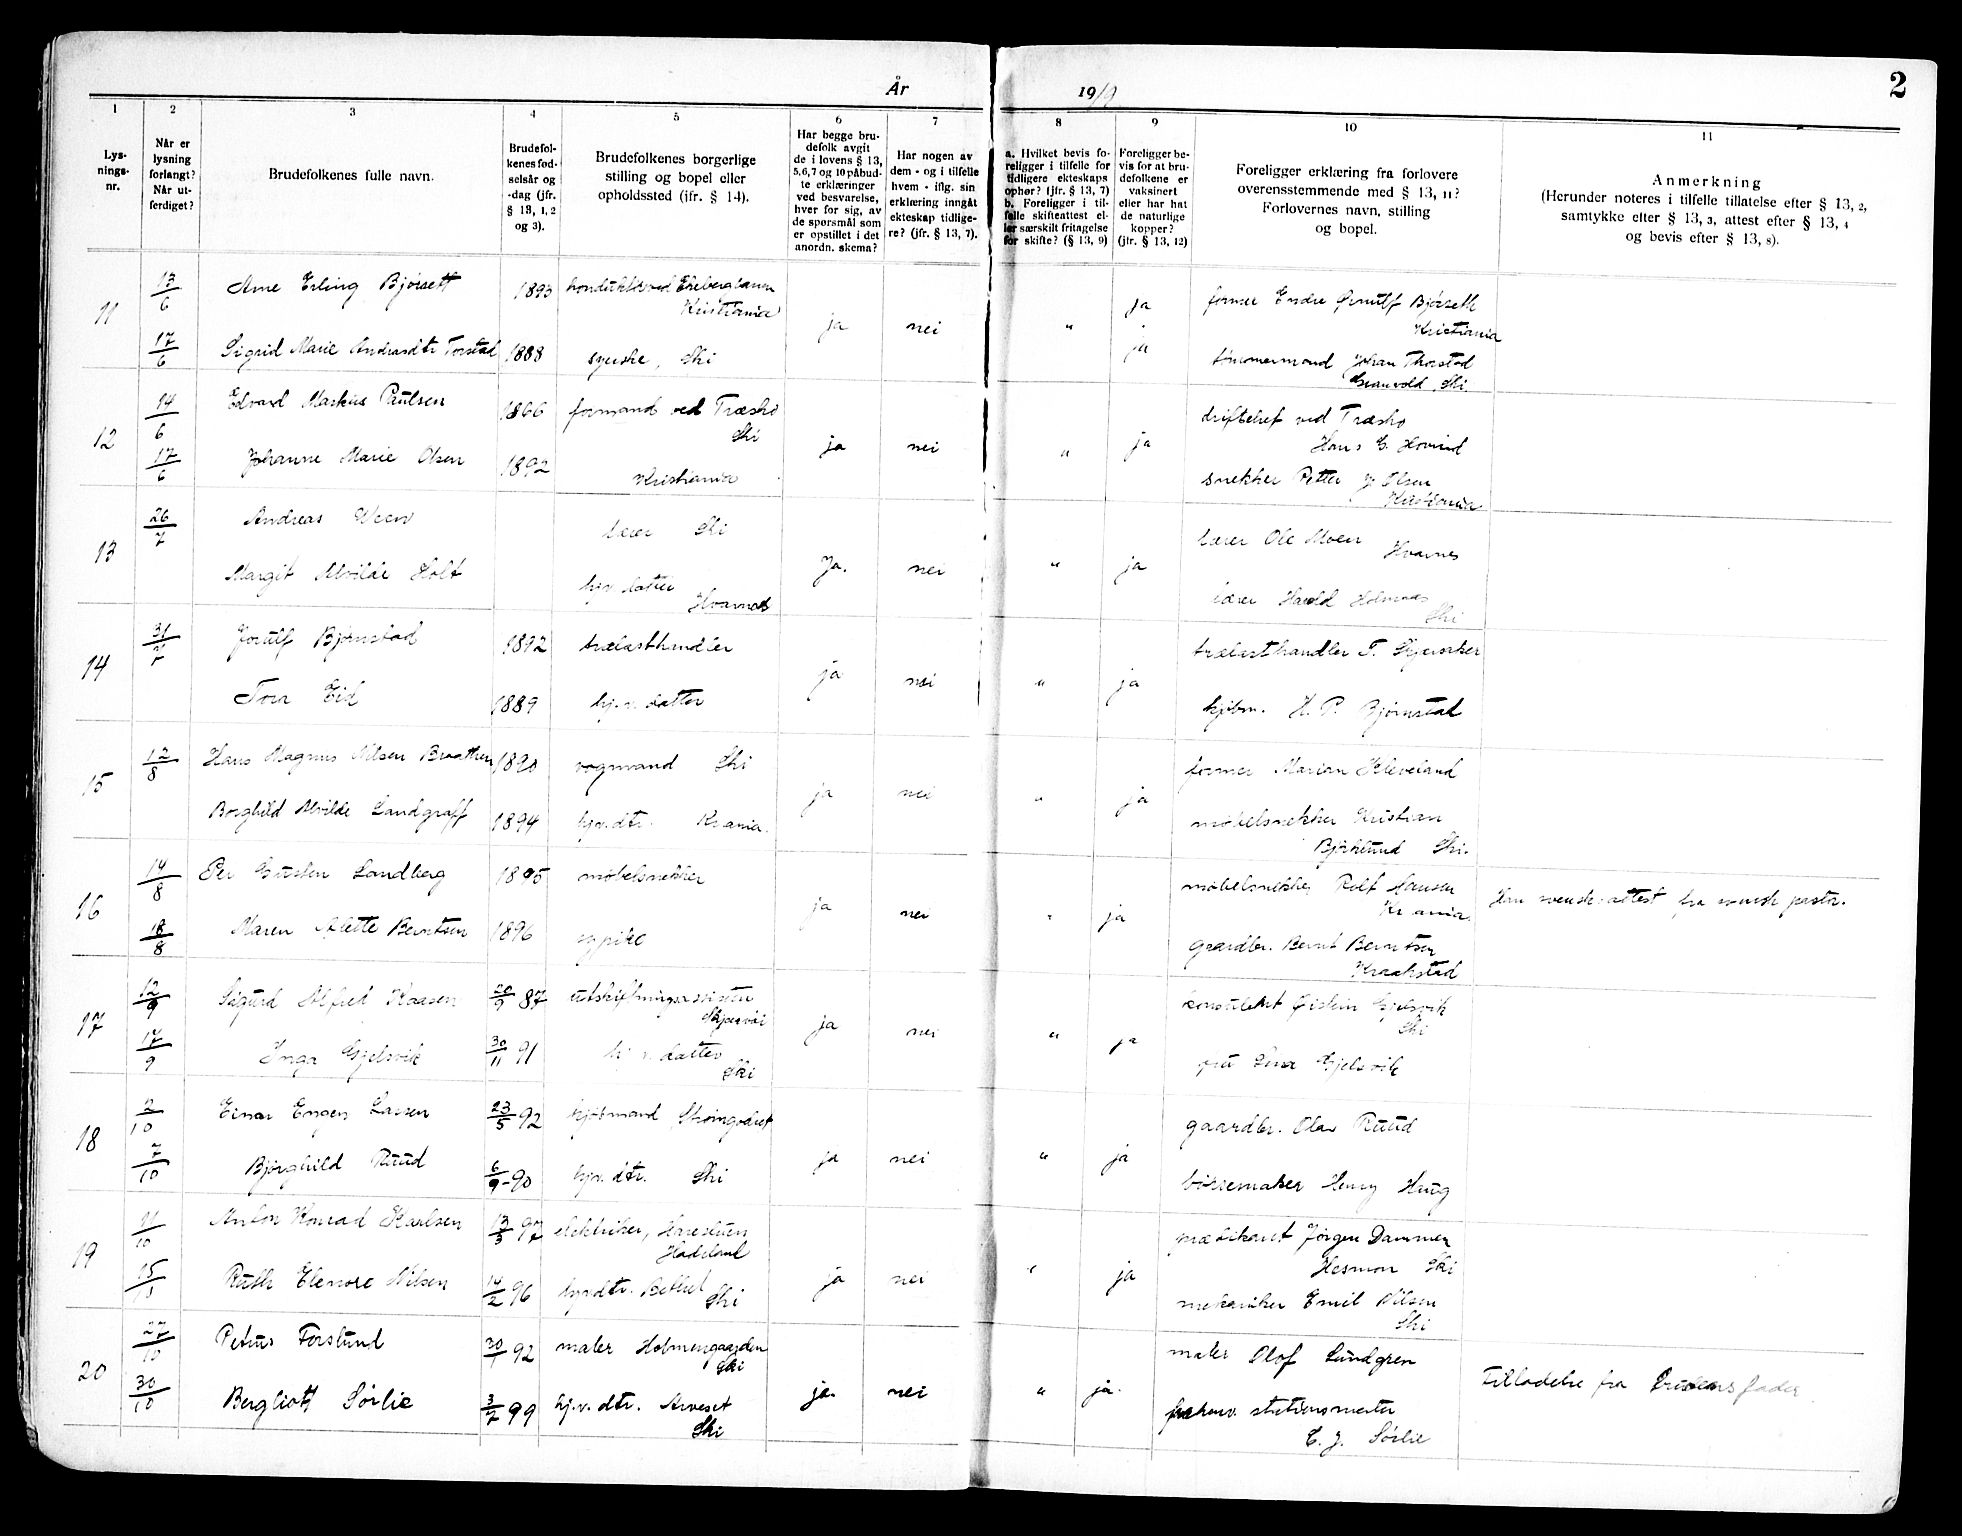 År 1919
2
1
2
3
4
5
6
7
8
9
10
11
Lys-
nings-
nr.
Når er
lysning
forlangt?
Når ut-
ferdiget?
Brudefolkenes fulle navn.
Brudefol-
kenes fød-
selsår og
-dag (jfr.
§ 13, 1, 2
og 3).
Brudefolkenes borgerlige
stilling og bopel eller
opholdssted (jfr. § 14).
Har begge bru-
defolk avgit
de i lovens § 13,
5,6,7 og 10 påbud-
te erklæringer
ved besvarelse,
hver for sig, av
de spørsmål som
er opstillet i det
anordn. skema?
Har nogen av
dem - og i tilfelle
hvem - iflg. sin
erklæring inngåt
ekteskap tidlige-
re? (jfr. § 13, 7).
a. Hvilket bevis fo-
religger i tilfelle for
tidligere ekteskaps
ophør? (jfr. § 13, 7)
b. Foreligger i til-
felle skifteattest el-
ler særskilt fritagelse
for skifte? (§ 13, 9)
Foreligger be-
vis for at bru-
defolkene er
vaksinert
eller har hat
de naturlige
kopper?
(jfr. § 13, 12)
Foreligger erklæring fra forlovere
overensstemmende med § 13, 11?
Forlovernes navn, stilling
og bopel.
Anmerkning
(Herunder noteres i tilfelle tillatelse efter § 13, 2,
samtykke efter § 13, 3, attest efter § 13, 4
og bevis efter § 13, 8).
11
13/6
Arne Erling Bjørsett
1893
konduktør ved Ekebergbanen
Kristiania
ja
nei
"
ja
former Endre Bjørseth
Kristiania
17/6
Sigrid Marie Andreasdtr Torstad
1888
syerske, Ski
ja
tømmermand Johan Thorstad
Ski
12
14/6
Edvard Markus Paulsen
1866
formand ved Træsko
Ski
ja
nei
"
ja
driftschef ved Træsko
Hans E. Hovind
17/6
Johanne Marie Olsen
1892
Kristiania
snekker Petter J. Olsen
Kristiania
13
26/7
Andreas Ween
lærer Ski
Ja.
nei
"
ja
lærer Ole Moen
Hvarnes
Margit Alvilde Holt
hjv. datter
Hvarnes
lærer Harald Holmnæs
Ski
14
31/7
Jostulf Bjørnstad
1892
trælasthandler
ja
nei
"
ja
trælasthandler T. Skjersaker
Tora Eid
1889
hj.v. datter
kjøbm. H. P. Bjørnstad
15
12/8
Hans Magnus Nilsen Braathen
1890
vognmand Ski
ja
nei
"
ja
former Marian Kleveland
Borghild Alvilde Landgraff
1894
hjv. dtr. Kr.ania.
møbelsnekker Kristian
Bjørklund Ski.
16
14/8
Per Gusten Landberg
1895
møbelsnekker
ja
nei
"
ja
møbelsnekker Rolf Hansen
Kr.ania
Han svensk: attest fra svensk pastor.
18/8
Maren Alette Berntsen
1896
sypike
gaardbr. Bernt Berntsen
Kraakstad
17
12/9
Sigurd Alfred Kaasen
20/9 87
utskiftningsassistent
Skjærvøi
ja
nei
"
ja
konsulent Øistein Gjelsvik
Ski
17/9
Inga Gjelsvik
30/11 91
hj.v. datter
Ski
fru Lina Gjelsvik
18
2/10
Einar Engen Larsen
23/5 92
kjøbmand Skoingodset
ja
nei
"
ja
gaardbr. Olav Ruud
7/10
Bjørghild Ruud
6/9 - 90
hjv. dtr. Ski
børsemaker Henry Haug
19
11/10
Anton Konrad Karlsen
13/3 97
elektriker, Harestuen
Hadeland
ja
nei
"
ja
prædikant Jørgen Dammen
Ski
15/10
Ruth Elenore Nilsen
14/2 96
hjv. dtr. Betel
Ski
mekaniker Emil Nilsen
Ski
20
27/10
Petrus Forslund
30/1 92
maler Holmengaarden
Ski
ja.
nei
"
ja.
maler Olof Lundgren
Tilladelse fra brudens fader
30/10
Bergliott Sørlie
3/7 99
hj.v. dtr. Arveset
Ski
stationsmester
E. J. Sørlie